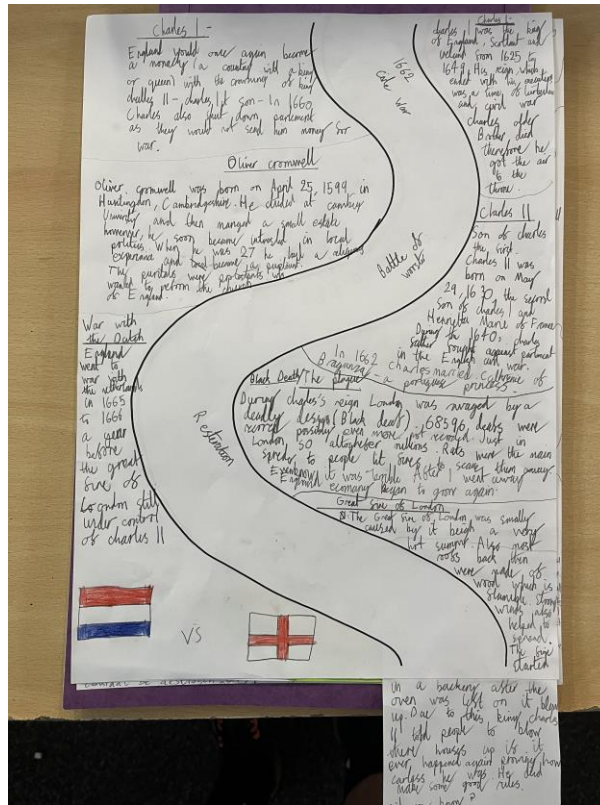 Charles I -
England would once again become
a monechy (a country with a king
or queen) with the crowning of king
charles II - charles 1st son - In 1660,
Charles also shut down parlement
as they would not send him money for
war.
Oliver cromwell
Oliver, cromwell was born on April 25, 1599, in
Huntingdon, Cambridgeshire. He studied at
University and then manged a small estate
however, he soon became intrested in local
politics. When he was 27 he had a religious
experience and became
The puritals were protestants who
wanted to reform the church
of England.
War with
the Dutch
England
went to
war with
the netherlands
in 1665
to 1666
a year
before
the great
fire of
London still
under control
of charles II
VS
1662
Civil War
Battle of
Restoration
Charles I
charles 1 was the king
of England, Scotland and
ireland from 1625 to
1649. His reign, which
ended with his execution
was a time of
and civil war
charles older
Brother died
therefore he
got the air
to the
throne.
Charles II
Son of charles
the first
Charles II was
born on May
29, 1630, the second
Son of charles 1 and
Henrietta Marie of France
During the 1640s, charles
fought against parliment
in the English civil war.
In 1662 charles married Catherine of
Braganza - a portugese princess.
Black Death/The plague
During charles's reign London was ravaged by a
deadly (Black death). 68596, deaths were
record possibly even more not recored. Just in
London, 50 altogheger millions. Rats were the main
spreder to people lit fires to scare them away
Eventhough it was terrible After it went away
England economany began to grow again.
Great fire of London
The Great fire of London was smally
caused by it beigh a very
hot summer. Also most
roofs back then
were made of
wood which is
flamible. Strong
winds also
helped to
spread.
The fire
started
in a backery after the
oven was left on it blew
up. Due to this, king charles
II told people to blow
there houses up if it
ever happened again proving how
carless he was. He did
make some good rules.